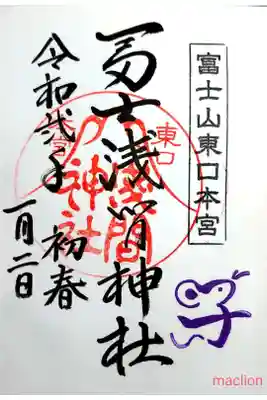 富士山東口本宮
子
冨士浅間神社
東口
神社
令和弐年 初春
一月二日
maclion